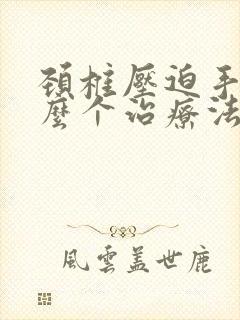 頸椎壓迫手
麼个治療法
風雲蓋世鹿